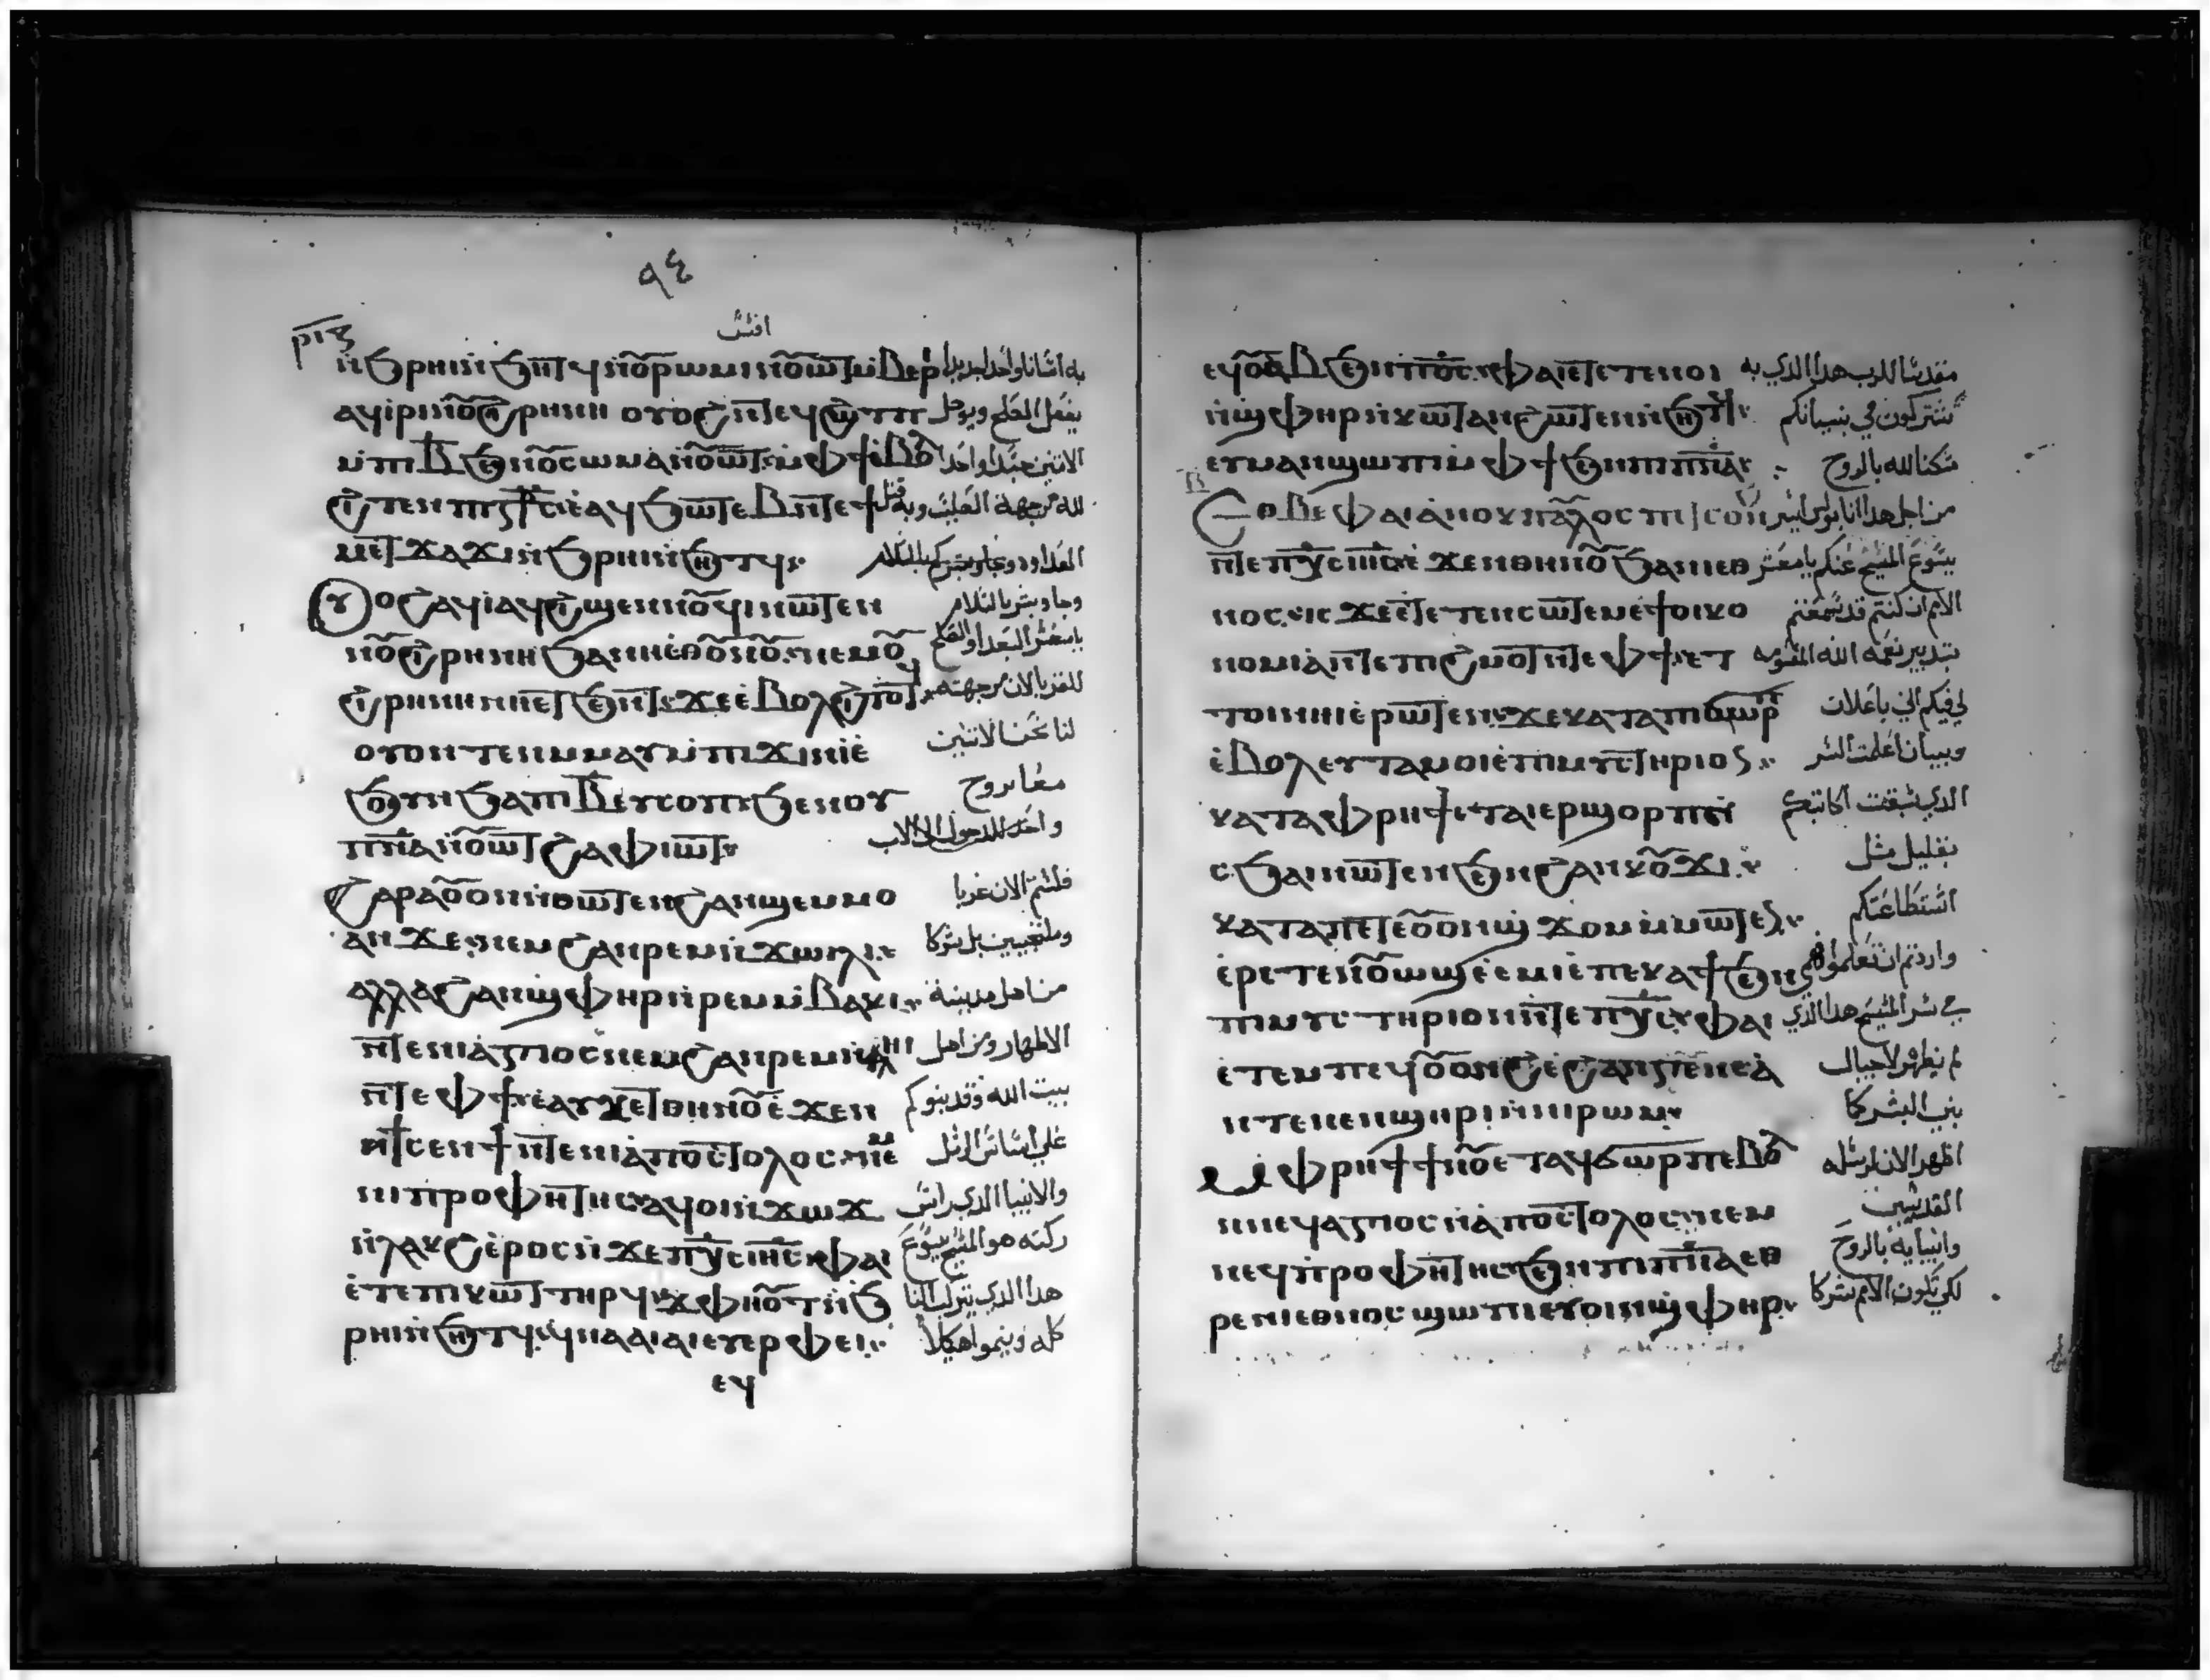 ٩٤
ⲣⲓⲍ
افسس
ⲛ̀ϧⲣⲏⲓ ⲛ̀ϧⲏⲧϥ ⲛ̀ⲟⲩⲣⲱⲙⲓ ⲛ̀ⲟⲩⲱⲧ ⲙ̀ⲃⲉⲣⲓ به انسانا واحدا جديدا
ⲁϥⲓⲣⲓ ⲛ̀ⲟⲩϩⲓⲣⲏⲛⲏ ⲟⲩⲟϩ ⲛ̀ⲧⲉϥϩⲱⲧⲡ يفعل الصلح ويوصل
ⲙ̀ⲡⲓⲃ̅ ϧⲉⲛ ⲟⲩⲥⲱⲙⲁ ⲛ̀ⲟⲩⲱⲧ ⲙ̀ⲫϯ ⲉ̀ⲃⲟⲗ الاتنين جسدا واحدا
ϩⲓⲧⲉⲛ ⲡⲓⲥⲧⲁⲩⲣⲟⲥ ⲉ̀ⲁϥϧⲱⲧⲉⲃ ⲛ̀ϯ لله من جهة الصليب وبه قتل
ⲙⲉⲧϫⲁϫⲓ ⲛ̀ϧⲣⲏⲓ ⲛ̀ϧⲏⲧϥ العداوه
ⲟⲩⲟϩ ⲁϥⲓ ⲁϥϩⲓϣⲉⲛⲛⲟⲩϥⲓ ⲛⲱⲧⲉⲛ وجا وبشر بالسلام
ⲛ̀ⲟⲩϩⲓⲣⲏⲛⲏ ϧⲁ ⲛⲏⲉⲑⲟⲩⲏⲟⲩ ⲛⲉⲙ ⲟⲩ يا معشر البعدا والصلح
ϩⲓⲣⲏⲛⲏ ⲛⲏⲉⲧϧⲉⲛⲧ ϫⲉ ⲉ̀ⲃⲟⲗ ϩⲓⲧⲟⲧϥ للقربا لان من جهته
ⲟⲩⲟⲛⲧⲉⲛ ⲙ̀ⲙⲁⲩ ⲙ̀ⲡⲓϫⲓⲛⲓ ⲉ̀ لنا نحن الاتنين
ϧⲟⲩⲛ ϧⲁ ⲡⲓⲃ̅ ⲉⲩⲥⲟⲡ ϧⲉⲛ ⲟⲩ معا بروح
ⲡⲛⲁ ⲛ̀ⲟⲩⲱⲧ ϩⲁ ⲫⲓⲱⲧ واحد الدخول الى الاب
ϩⲁⲣⲁ ⲟⲩⲛ ⲛ̀ⲑⲱⲧⲉⲛ ϩⲁⲛϣⲉⲙⲙⲟ فلستم الان غربا
ⲁⲛ ϫⲉ ⲛⲉⲙ ϩⲁⲛⲣⲉⲙⲛ̀ϫⲱⲓⲗⲓ وملتجيين بل شركا
ⲁⲗⲗⲁ ϩⲁⲛϣⲫⲏⲣ ⲛ̀ⲣⲉⲙⲙ̀ⲃⲁⲕⲓ من اهل مدينة
ⲛ̀ⲧⲉ ⲛⲓⲁ̀ⲅⲓⲟⲥ ⲛⲉⲙ ϩⲁⲛⲣⲉⲙⲛ̀ⲏⲓ الاطهار ومن اهل
ⲛ̀ⲧⲉ ⲫϯ ⲉ̀ⲁⲩⲕⲉⲧ ⲑⲏⲛⲟⲩ ⲉ̀ϫⲉⲛ بيت الله وقد بنوكم
ϯⲥⲉⲛϯ ⲛ̀ⲧⲉ ⲛⲓⲁ̀ⲡⲟⲥⲧⲟⲗⲟⲥ ⲛⲉⲙ علي اساس الرسل
ⲛⲓⲡⲣⲟⲫⲏⲧⲏⲥ ⲁϥⲟⲓ ⲛ̀ϫⲱϫ والانبيا الدي راس
ⲛ̀ⲗⲁⲕϩ ⲉ̀ⲣⲟⲥ ⲛ̀ϫⲉ ⲡⲭⲥ ⲓⲏⲥ ⲫⲁⲓ ركنه هو المسيح يسوع
ⲉ̀ⲧⲉ ⲡⲓⲕⲱⲧ ⲧⲏⲣϥ ⲭⲫⲏⲟⲩⲧ ⲛ̀ϧ هدا الدي يتركب البنا
ⲣⲏⲓ ⲛ̀ϧⲏⲧϥ ϥⲛⲁⲁⲓⲁⲓ ⲉⲩⲉⲣⲫⲉⲓ كله وينموا هيكلا
ⲉϥ
ⲉϥⲟⲩⲁⲃ ϧⲉⲛ ⲡⲟⲥ ⲫⲁⲓ ⲉ̀ⲧⲉⲧⲉⲛⲟⲓ مقدسا للرب هدا الدي به
ⲛ̀ϣⲫⲏⲣ ⲛ̀ⲕⲱⲧ ⲁⲛ ϩⲱⲧⲉⲛ ⲛ̀ϧⲏⲧϥ تشتركون في بنيانكم
ⲉⲩⲙⲁⲛϣⲱⲡⲓ ⲙ̀ⲫϯ ϧⲉⲛ ⲡⲓⲡⲛⲁ مسكنا لله بالروح
ⲉⲑⲃⲉ ⲫⲁⲓ ⲁ̀ⲛⲟⲕ ⲡⲁⲩⲗⲟⲥ ⲡⲓⲥⲟⲛϩ من اجل هدا انا بولس اسير
ⲛ̀ⲧⲉ ⲡⲭⲥ ⲓⲏⲥ ϫⲉⲛ ⲑⲏⲛⲟⲩ ϧⲁ ⲛⲓⲉⲑ يسوع المسيح عنكم يا معشر
ⲛⲟⲥ ⲓⲥϫⲉ ⲉ̀ⲧⲉⲧⲉⲛⲥⲱⲧⲉⲙ ⲉ̀ϯⲟⲓⲕⲟ الامم ان كنتم قد سمعتم
ⲛⲟⲙⲓⲁ̀ ⲛ̀ⲧⲉ ⲡⲓϩⲙⲟⲧ ⲛ̀ⲧⲉ ⲫϯ ⲉⲧ بتدبير نعمه الله المقسومه
ⲧⲟⲓ ⲛⲏⲓ ⲉ̀ⲣⲱⲧⲉⲛ ϫⲉ ⲕⲁⲧⲁ ⲡⲓϭⲱⲣⲡ لي فيكم اني باعلان
ⲉ̀ⲃⲟⲗ ⲉⲩⲧⲁⲙⲟⲓ ⲉ̀ⲡⲓⲙⲩⲥⲧⲏⲣⲓⲟⲛ وبيان اعلمت السر
ⲕⲁⲧⲁ ⲫⲣⲏϯ ⲉⲧⲁⲓⲉⲣϣⲟⲣⲡ ⲛ̀ الدي سبقت
ⲥϧⲁⲓ ⲛⲱⲧⲉⲛ ϧⲉⲛ ϩⲁⲛⲕⲟⲩϫⲓ بقليل مثل
ⲕⲁⲧⲁ ⲡⲉⲧⲉ ⲟⲩⲟⲛϣϫⲟⲙ ⲙ̀ⲙⲱⲧⲉⲛ استطاعتكم
ⲉ̀ⲣⲉⲧⲉⲛⲟⲩⲱϣ ⲉ̀ⲉⲙⲓ ⲉ̀ⲡⲉⲕⲁϯ ϧⲉⲛ واردتم ان تعلموا
ⲡⲓⲙⲩⲥⲧⲏⲣⲓⲟⲛ ⲛ̀ⲧⲉ ⲡⲭⲥ ⲫⲁⲓ في سر المسيح هدا الدي
ⲉ̀ⲧⲉⲙⲡⲉϥⲟⲩⲟⲛϩ ⲉ̀ϩⲁⲛⲅⲉⲛⲉⲁ̀ لم يظهر لاجيال
ⲛ̀ⲧⲉ ⲛⲉⲛϣⲏⲣⲓ ⲛ̀ⲛⲓⲣⲱⲙⲓ بني البشر كما
ⲙ̀ⲫⲣⲏϯ ϯⲛⲟⲩ ⲉⲧⲁϥϭⲱⲣⲡ ⲉ̀ⲃⲟⲗ اظهر الان لرسله
ⲛ̀ⲛⲉϥⲁⲅⲓⲟⲥ ⲛ̀ⲁ̀ⲡⲟⲥⲧⲟⲗⲟⲥ ⲛⲉⲙ القديسين
ⲛⲉϥⲡⲣⲟⲫⲏⲧⲏⲥ ϧⲉⲛ ⲡⲓⲡⲛⲁ ⲉⲑ وانبيايه بالروح
ⲣⲉ ⲛⲓⲉⲑⲛⲟⲥ ϣⲱⲡⲓ ⲉⲩⲟⲓ ⲛ̀ϣⲫⲏⲣ لكي تكون الامم شركا